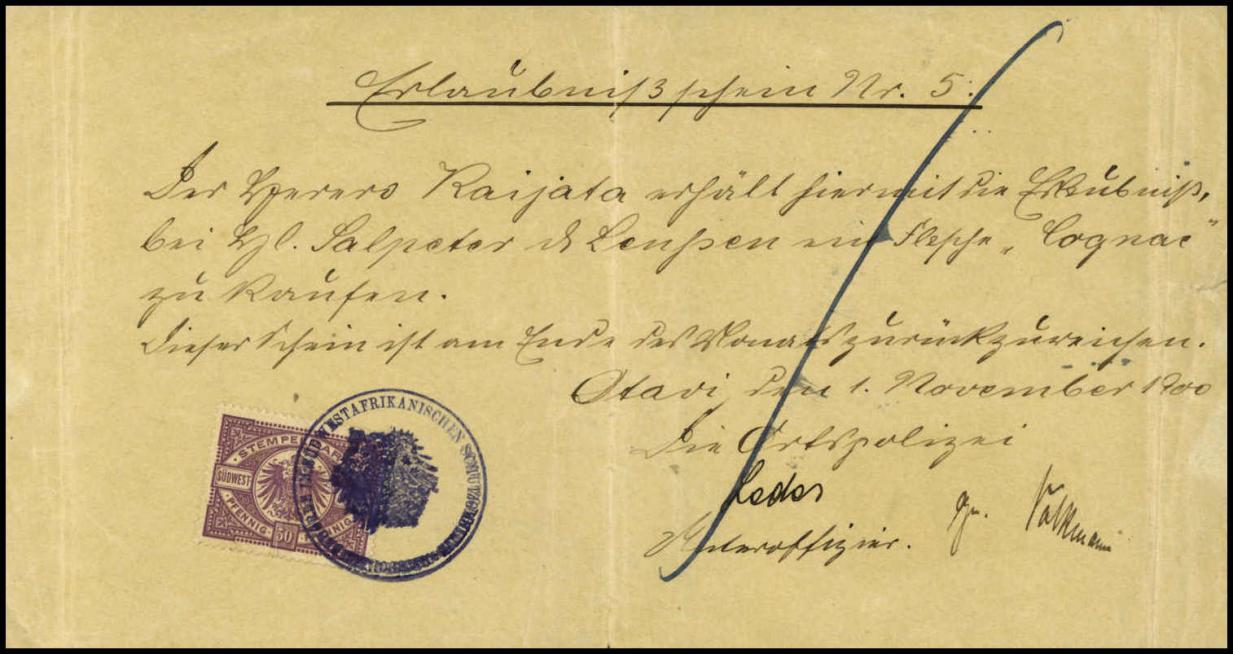 Erlaubnißschein Nr. 5.
Der Herero Kaijata erhält hiermit die Erlaubniß,
bei Hl. Salpeter & Leußen ein Flasche „Cognac“
zu kaufen.
Dieser Schein ist am Ende des Monats zurückzureichen.
Otavi, den 1. November 1900
Die Ortspolizei
Unteroffizier.
gez. Volkmann
STEMPELMARKE
SÜDWEST
PFENNIG 50 PFENNIG
SÜDWESTAFRIKANISCHEN SCHUTZGEBIET